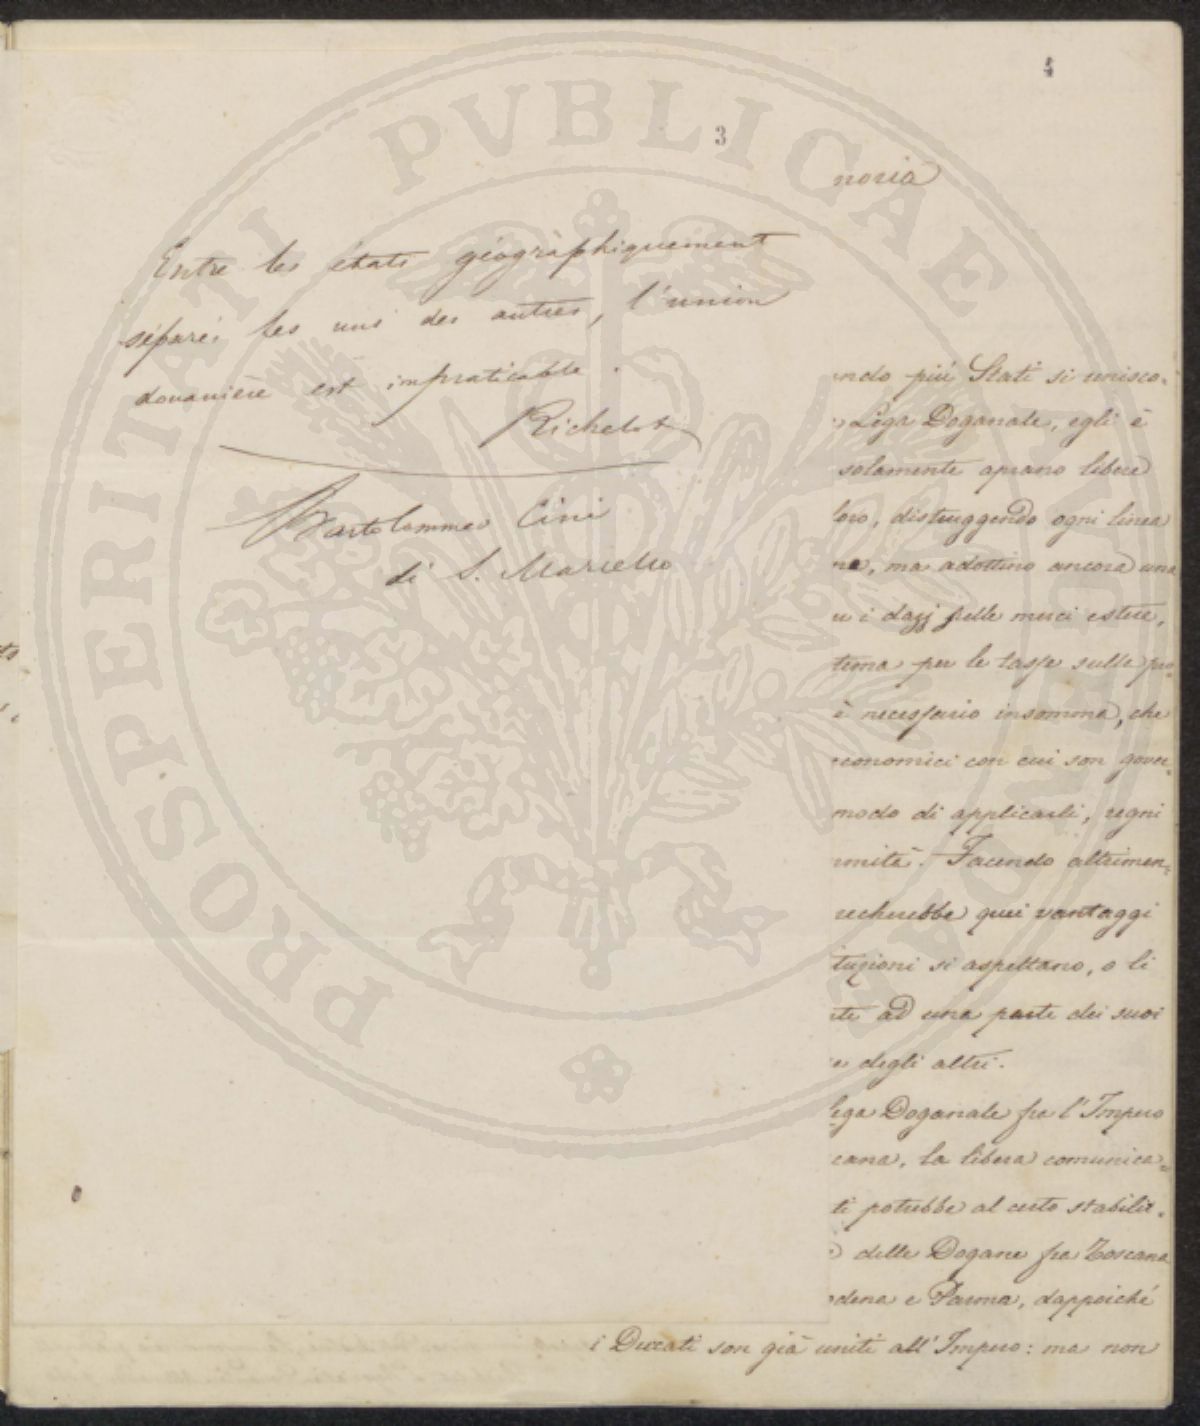 4
3
Entre les états géographiquement
séparés les uns des autres, l'union
douanière est impraticable.
Richelot
Bartolommeo Cini
di S. Marcello
moria
ndo più Stati si unisco-
Lega Doganale, egli è
solamente aprano libere
loro, distruggendo ogni linea
ne, ma adottino ancora una
i dazj sulle merci estere,
tema per le tasse sulle pro-
è necessario insomma, che
economici con cui son gover-
modo di applicarli, regni
rmità. Facendo altrimen-
recherebbe quei vantaggi
tuzioni si aspettano, o li
nte ad una parte dei suoi
degli altri.
lega Doganale fra l'Impero
cana, la libera comunica-
ti potrebbe al certo stabilir-
delle Dogane fra Toscana
odena e Parma, dappoiché
i Ducati son già uniti all'Impero: ma non
PROSPERITATI PVBLICAE